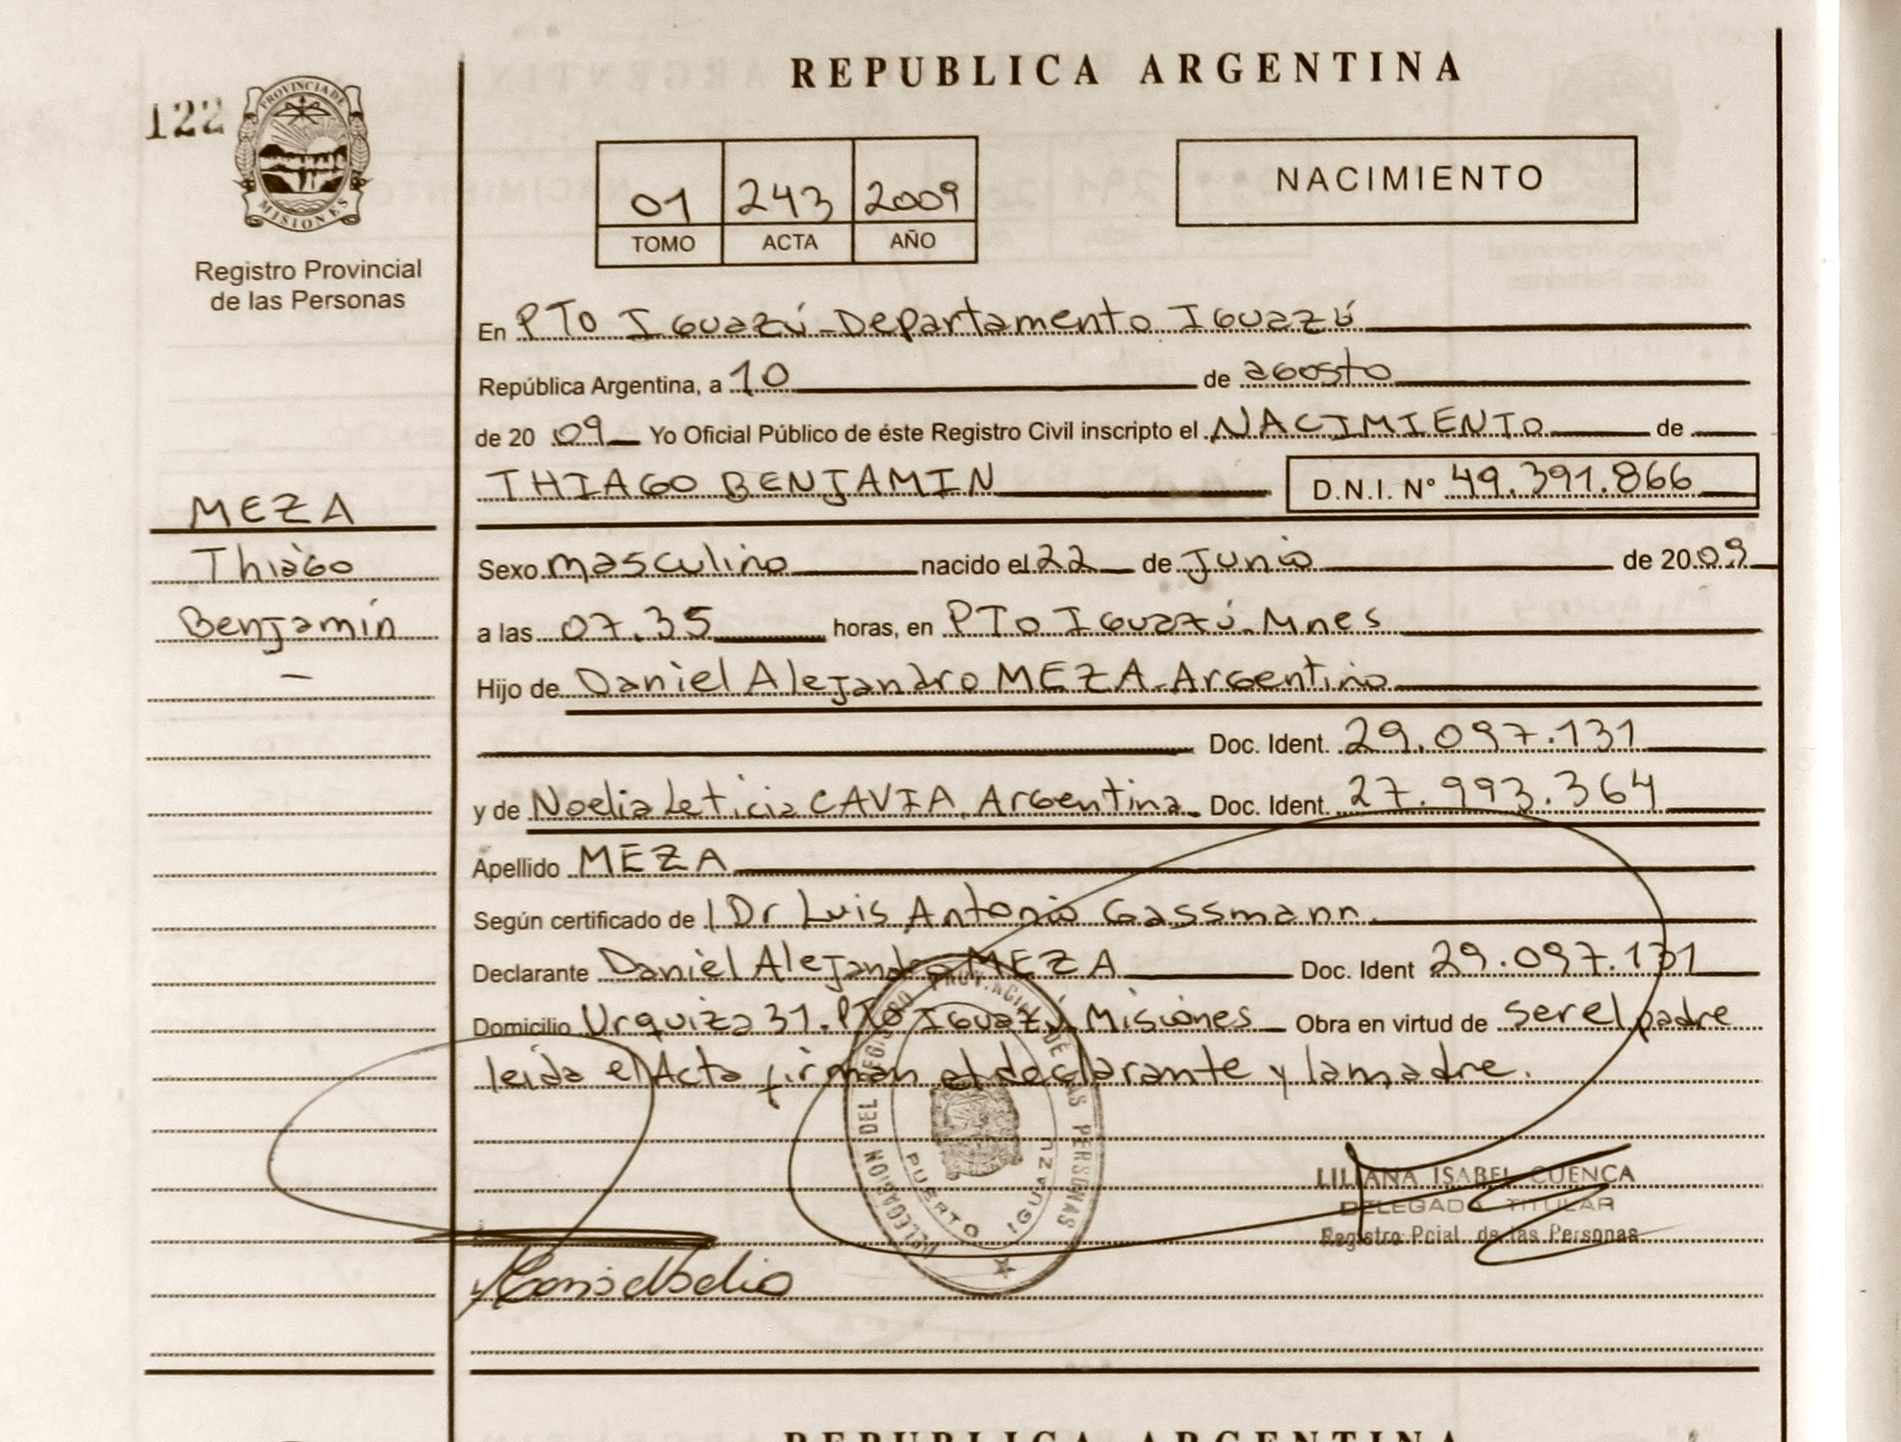 REPUBLICA ARGENTINA
122
PROVINCIA DE
MISIONES
Registro Provincial
de las Personas
01 243 2009
TOMO ACTA AÑO
NACIMIENTO
En PTo Iguazú - Departamento Iguazú
República Argentina, a 10 de agosto
de 2009 Yo Oficial Público de éste Registro Civil inscripto el NACIMIENTO de
THIAGO BENJAMIN D.N.I. Nº 49.391.866
MEZA
Thiago
Benjamin
Sexo masculino nacido el 22 de Junio de 2009
a las 07.35 horas, en PTo Iguazú. Mnes
Hijo de Daniel Alejandro MEZA - Argentino
Doc. Ident. 29.097.131
y de Noelia Leticia CAVIA. Argentina Doc. Ident. 27.993.364
Apellido MEZA
Según certificado de Dr Luis Antonio Gassmann.
Declarante Daniel Alejandro MEZA Doc. Ident 29.097.131
Domicilio Urquiza 31. PTo Iguazú. Misiones Obra en virtud de ser el padre
leida el Acta firman el declarante y la madre.
DELEGACION DEL REGISTRO PROVINCIAL DE LAS PERSONAS
PUERTO IGUAZU
LILIANA ISABEL CUENCA
DELEGADA TITULAR
Registro Pcial. de las Personas
REPUBLICA ARGENTINA